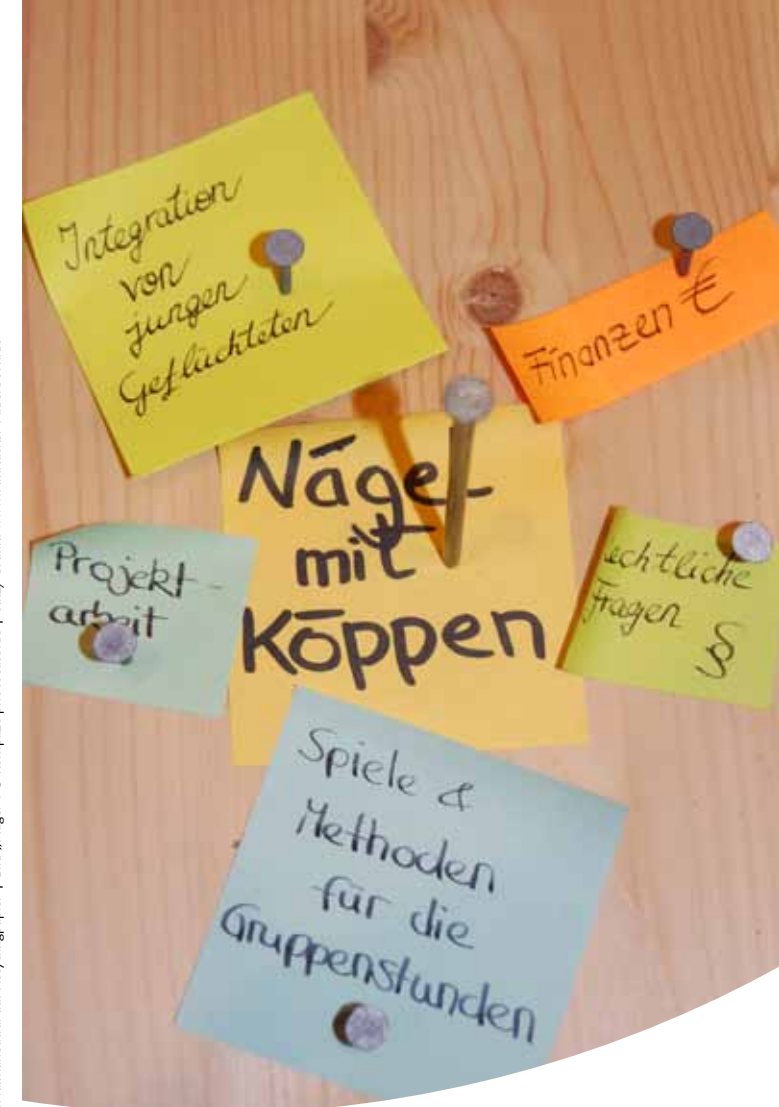 Integration
von
jungen
Geflüchteten
Finanzen €
Nägel
mit
Köppen
Projekt-
arbeit
echtliche
Fragen §
Spiele &
Methoden
für die
Gruppenstunden